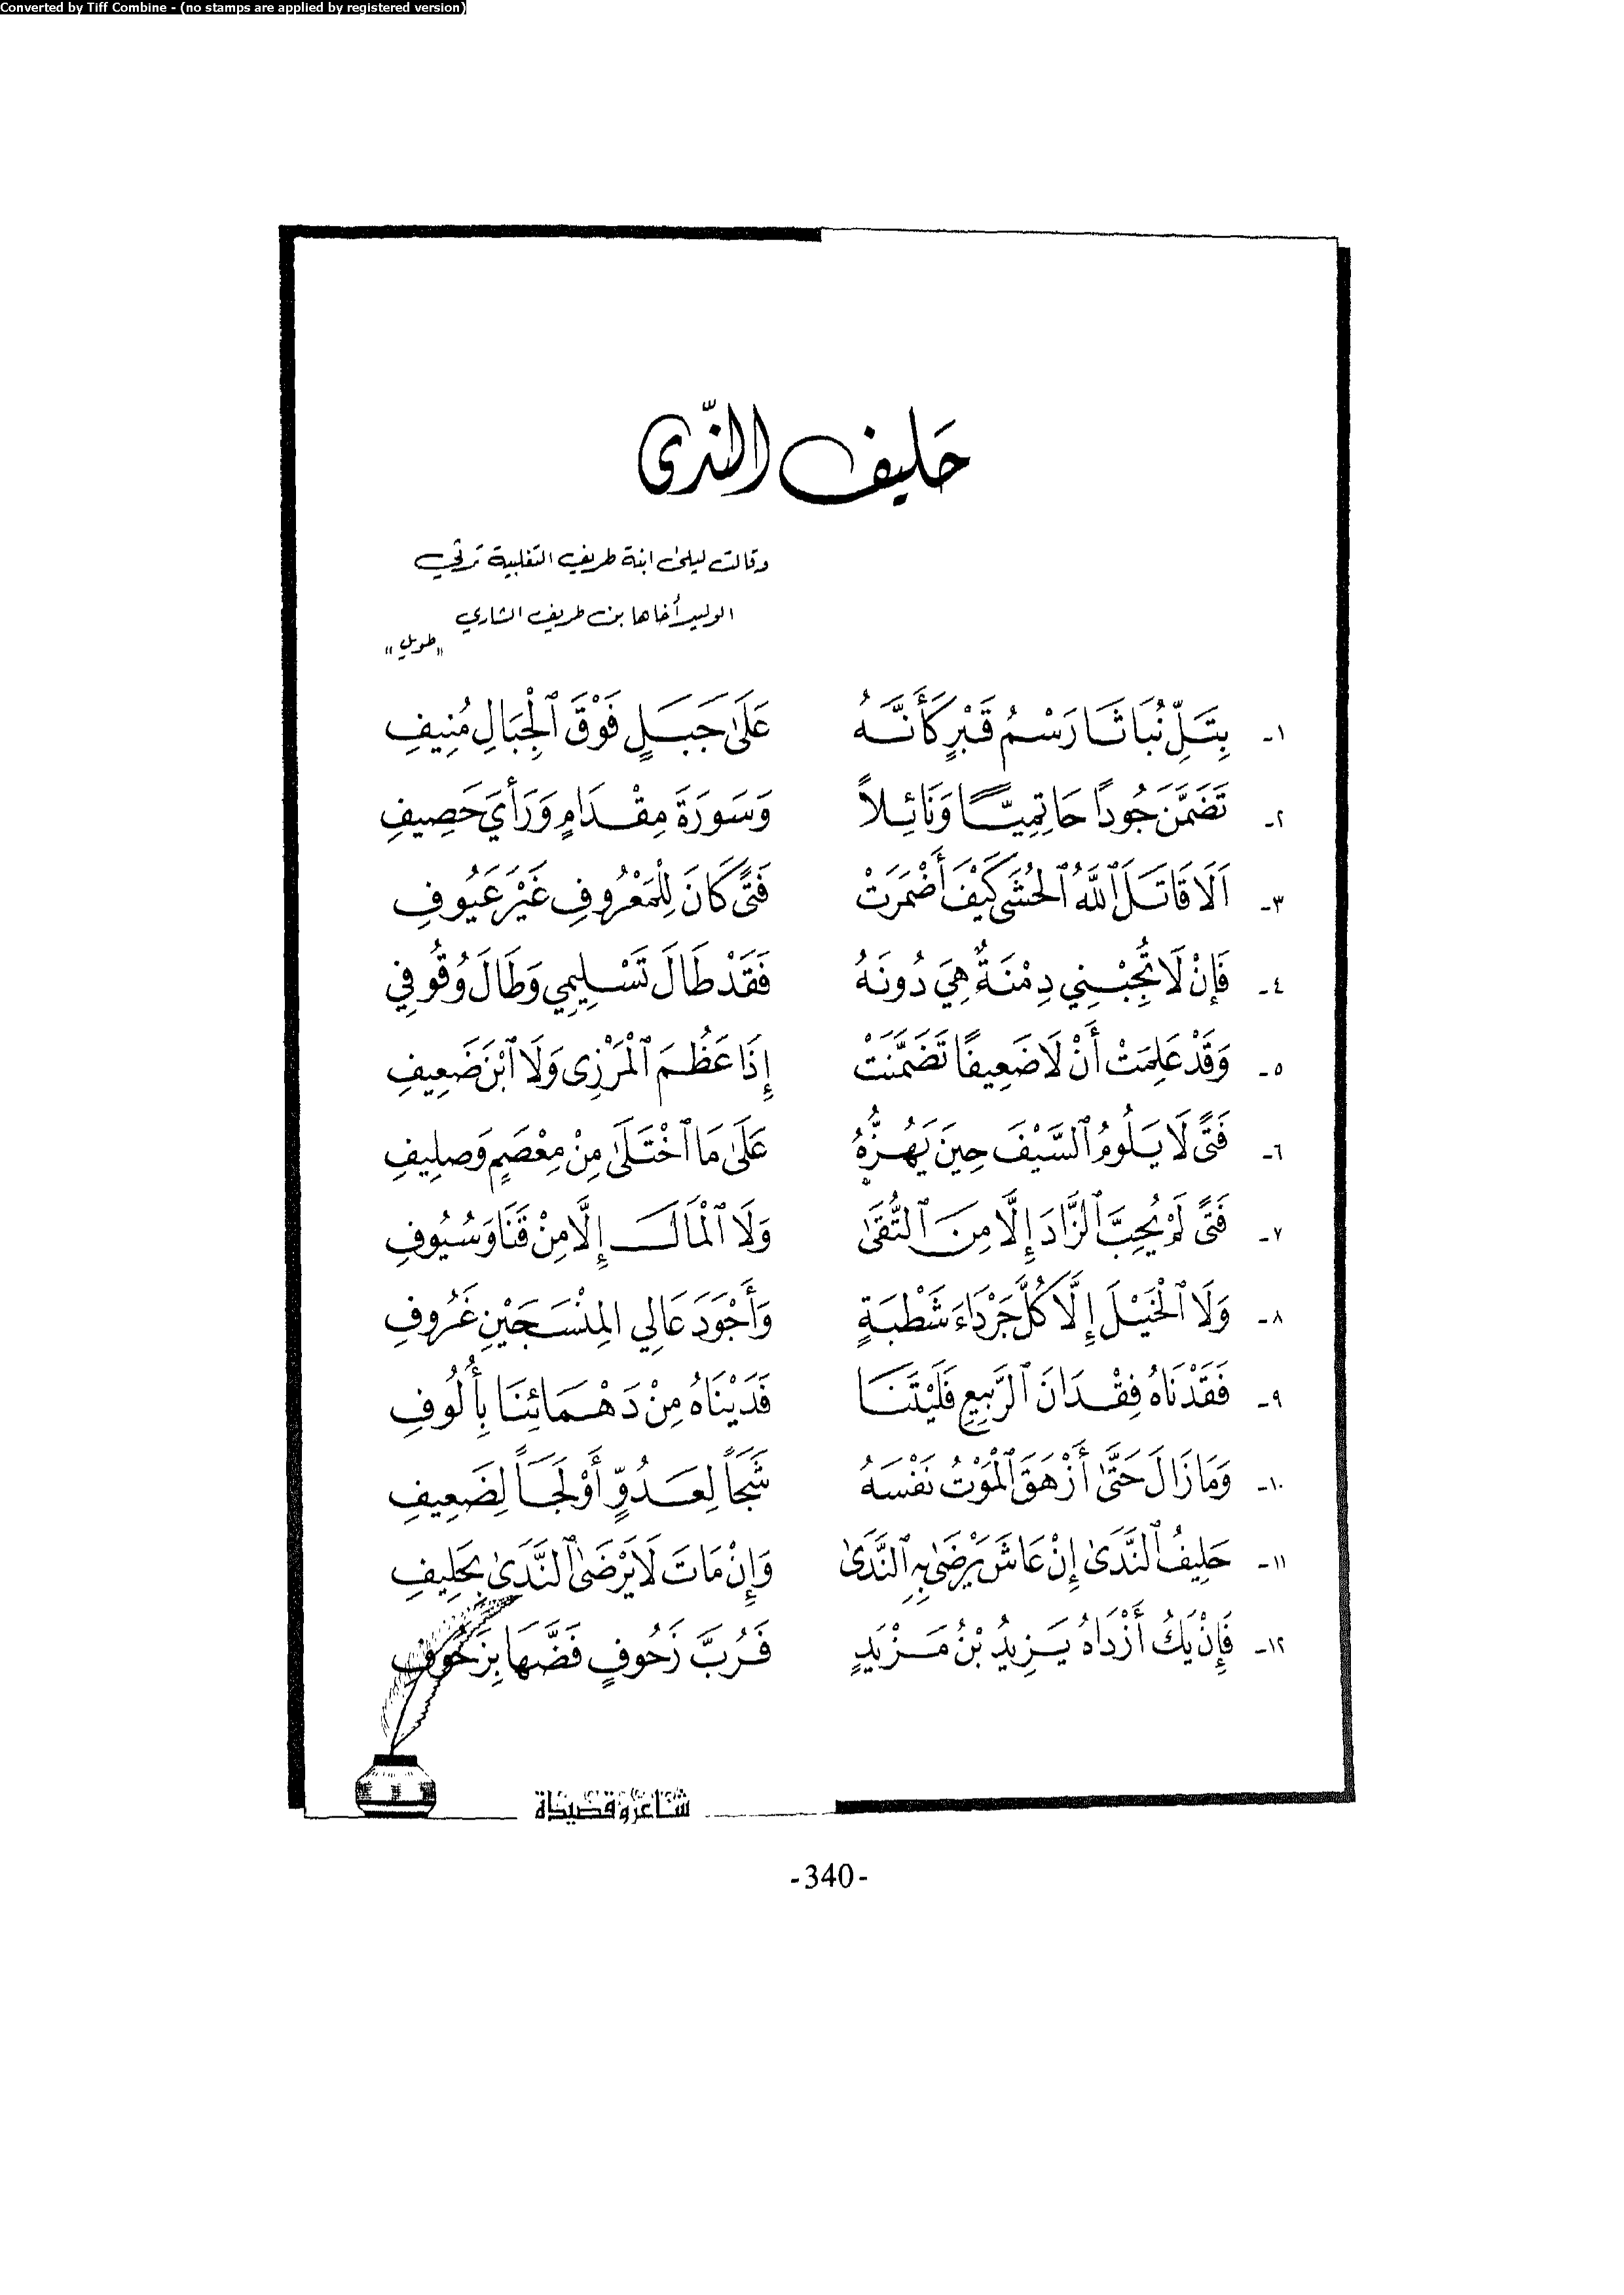 Converted by Tiff Combine - (no stamps are applied by registered version)
حَليف النّدى
وقالت ليلى ابنة طريف التغلبية ترثي
الوليد أخاها بن طريف الشاري
"طويل"
١- بِتَلِّ نُبَاثَا رَسْمُ قَبْرٍ كَأَنَّهُ عَلَىٰ جَبَلٍ فَوْقَ ٱلْجِبَالِ مُنِيفِ
٢- تَضَمَّنَ جُوداً حَاتِمِيًّا وَنَائِلاً وَسَوْرَةَ مِقْدَامٍ وَرَأْيَ حَصِيفِ
٣- اَلَا قَاتَلَ ٱللَّهُ ٱلْحُشَى كَيْفَ أَضْمَرَتْ فَتًى كَانَ لِلْمَعْرُوفِ غَيْرَ عَيُوفِ
٤- فَإِنْ لَا تُجِبْنِي دِمْنَةٌ هِيَ دُونَهُ فَقَدْ طَالَ تَسْلِيمِي وَطَالَ وُقُوفِي
٥- وَقَدْ عَلِمَتْ أَنْ لَا ضَعِيفًا تَضَمَّنَتْ إِذَا عَظُمَ ٱلْمَرْزِى وَلَا ٱبْنَ ضَعِيفِ
٦- فَتًى لَا يَلُومُ ٱلسَّيْفَ حِينَ يَهُزُّهُ عَلَىٰ مَا ٱخْتَلَىٰ مِنْ مِعْصَمٍ وَصَلِيفِ
٧- فَتًى لَمْ يُحِبَّ ٱلزَّادَ إِلَّا مِنَ ٱلتُّقَىٰ وَلَا ٱلْمَالَ إِلَّا مِنْ قَنَا وَسُيُوفِ
٨- وَلَا ٱلْخَيْلَ إِلَّا كُلَّ جَرْدَاءَ شَطْبَةٍ وَأَجْوَدَ عَالِي المِنْسَجَيْنِ غَرُوفِ
٩- فَقَدْنَاهُ فِقْدَانَ ٱلرَّبِيعِ فَلَيْتَنَا فَدَيْنَاهُ مِنْ دَهْمَائِنَا بِأُلُوفِ
١٠- وَمَا زَالَ حَتَّىٰ أَزْهَقَ ٱلْمَوْتُ نَفْسَهُ شَجَاً لِعَدُوٍّ أَوْ لَجَاً لِضَعِيفِ
١١- حَلِيفُ ٱلنَّدَىٰ إِنْ عَاشَ يَرْضَىٰ بِهِ ٱلنَّدَىٰ وَإِنْ مَاتَ لَا يَرْضَىٰ ٱلنَّدَىٰ بِحَلِيفِ
١٢- فَإِنْ يَكُ أَرْدَاهُ يَزِيدُ بْنُ مَزْيَدٍ فَرُبَّ زَحُوفٍ فَضَّهَا بِزَحُوفِ
شاعر وقصيدة
-340-